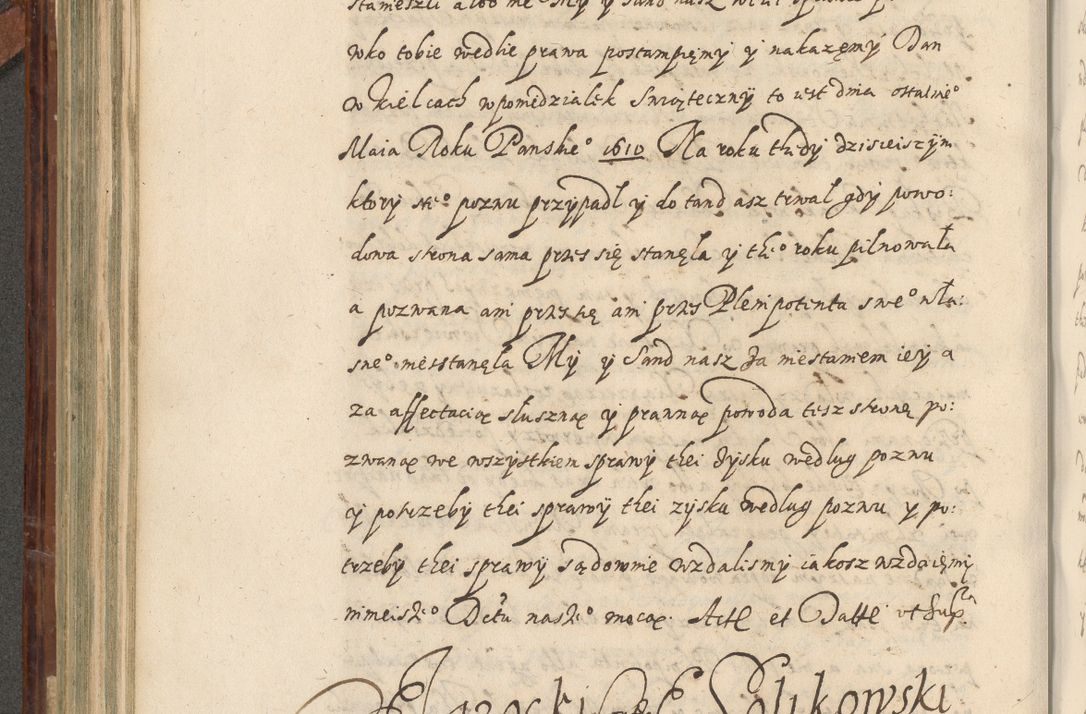 wko tobie wedlie prawa postąmpięmy y nakazęmy Dan
w Kielcach w poniedzialek Swiąteczny to iest dnia ostatnie°
Maia Roku Panskie° 1610 Na roku thedy dzisieiszÿm
ktory ste° pozwu przÿpadl ÿ do tand asz trwal gdy powo:
dowa strona sama przes się stanęla ÿ the° roku pilnowała
a pozwana ani przes się ani przes Plenipotenta swe° wła:
sne° niestanęla Mÿ ÿ Sand nasz Za niestaniem ieÿ a
za affectacią słuszną y prawną powoda tesz stronę po:
zwaną we wszystkiem sprawÿ thei Zysku według pozwu
y potrzeby thei sprawÿ thei zysku według pozwu y po:
trzeby thei sprawy sądownie wzdalismy iakosz wzdaięmy
ninieisze° Dctu nasze° mocą. Acte et Datte ut Supra
Solikowski